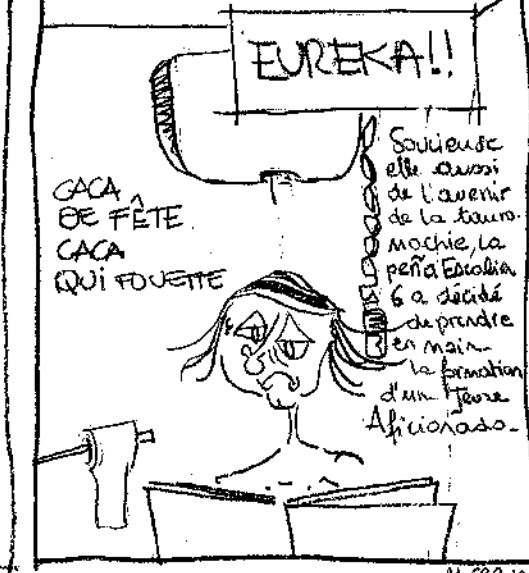 EUREKA!!
CACA
DE FÊTE
CACA
QUI FOUETTE
Soucieuse
elle aussi
de l'avenir
de la tauro-
machie, la
peña Escalier
6 a décidé
de prendre
en main
la formation
d'un Jeune
Aficionado.